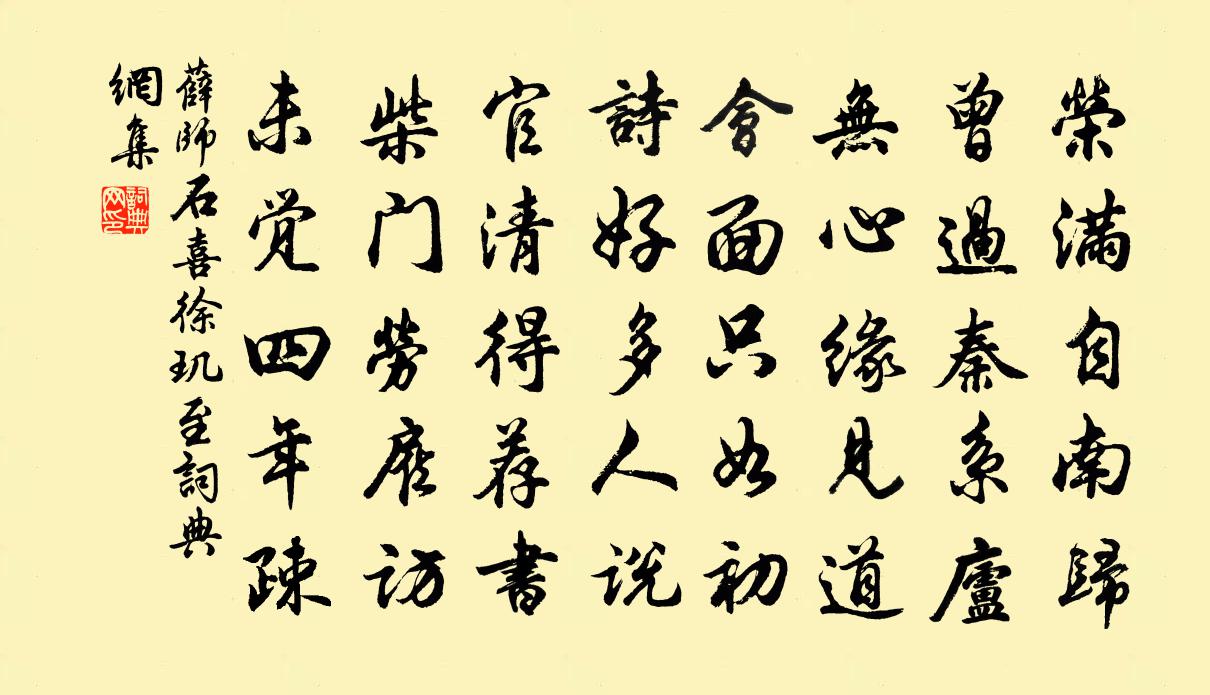 榮滿自南歸
曾過秦系廬
無心緣見道
會面只如初
詩好多人说
官清得荐書
柴门勞雇访
未觉四年疎
薛師石喜徐玑至詞典
網集
詞典
网印